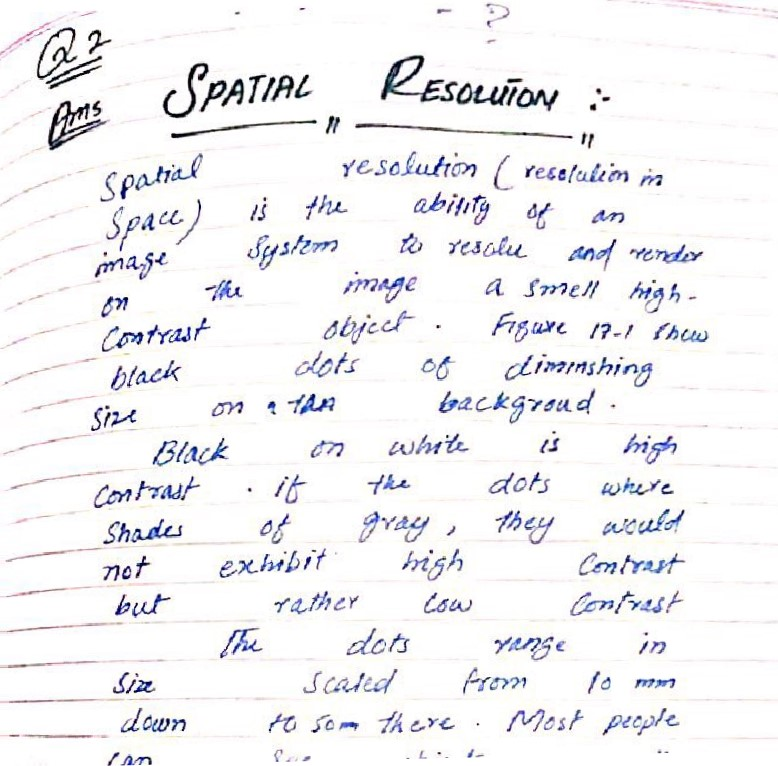 ?
Q2
Ans SPATIAL RESOLUTION :-
Spatial resolution (resolution in
Space) is the ability of an
image System to resolve and render
on the image a smell high-
Contrast object. Figure 17-1 show
black dots of diminshing
Size on a backgroud.
Black on white is high
Contrast. if the dots where
Shades of gray, they would
not exhibit high Contrast
but rather low Contrast
The dots range in
Size Scaled from 10 mm
down to there. Most people
Can